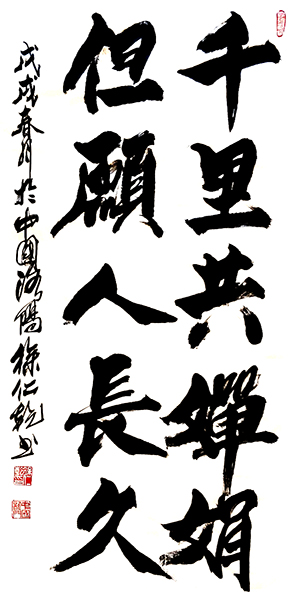 千里共嬋娟
但願人長久
戊戌春月於中國洛陽徐仁乾书